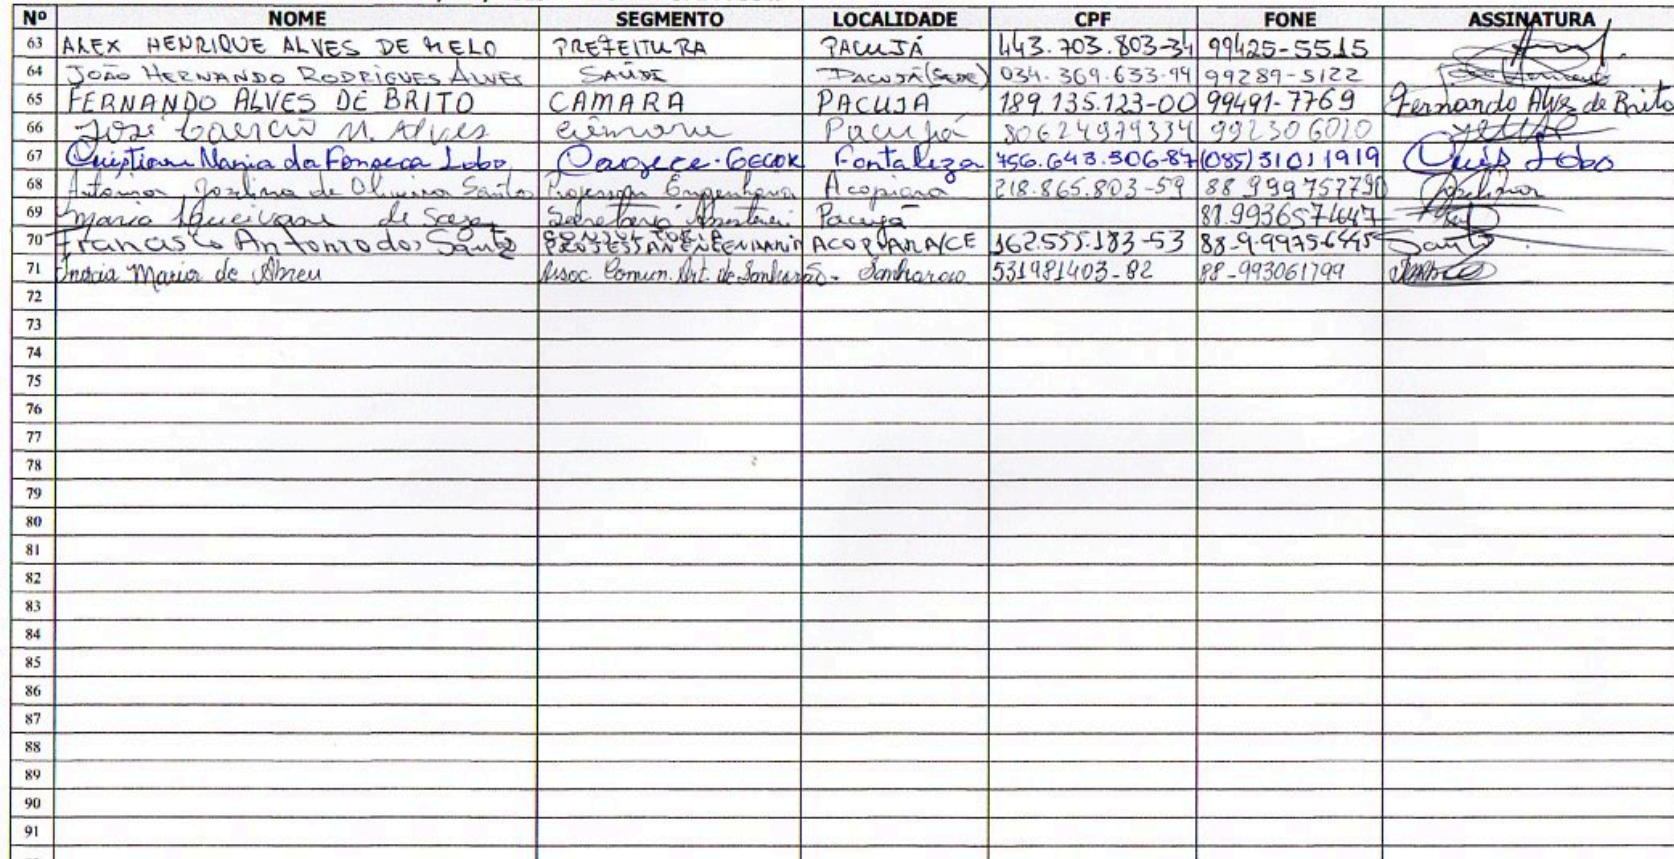 Nº NOME SEGMENTO LOCALIDADE CPF FONE ASSINATURA
63 ALEX HENRIQUE ALVES DE MELO PREFEITURA PACUJÁ 443.703.803-34 99425-5515
64 JOÃO HERNANDO RODRIGUES ALVES SAÚDE PACUJÁ (SEDE) 034.369.633-94 99289-5122
65 FERNANDO ALVES DE BRITO CAMARA PACUJA 189.135.123-00 99491-7769 Fernando Alvs de Brito
66 José M. Alves Pacujá 80624979334 992306020
67 Cristiane Maria da Fonseca Lobo Cagece-GECOR Fortaleza 756.643.306-87 (085) 31011919 Cris Lobo
68 Antonia Jozelina de Oliveira Santos Engenharia Acopiara 218.865.803-59 88.999757790
69 Maria de Pacujá 88.993657
70 Francisco Antonio dos Santo CONSULTORIA ACOPIARA/CE 162.555.183-53 Santo
71 Inacia Maria de Abreu Assoc. Comun. Art. de 531981403-82 88-993061799
72
73
74
75
76
77
78
79
80
81
82
83
84
85
86
87
88
89
90
91